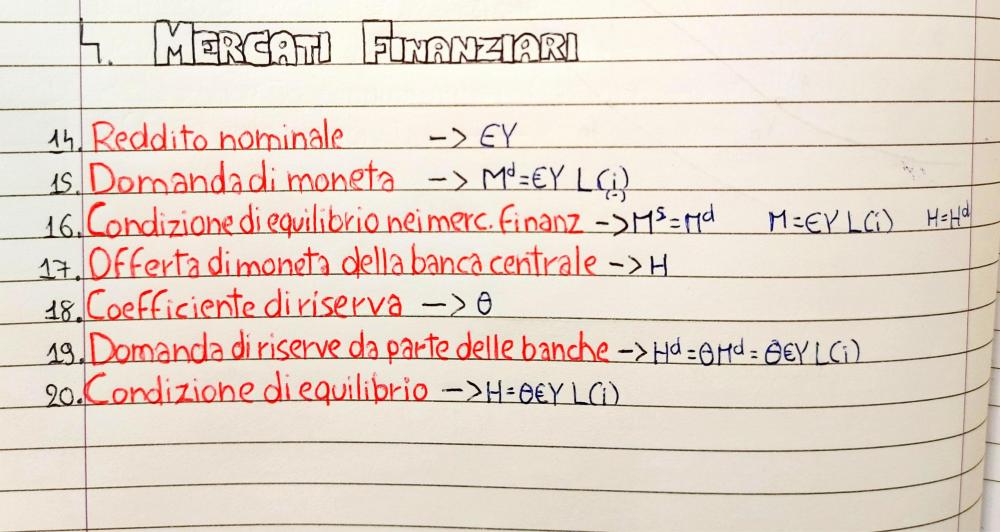 4. MERCATI FINANZIARI
14. Reddito nominale -> €Y
15. Domanda di moneta -> Mᵈ=€Y L(i)
(-)
16. Condizione di equilibrio nei merc. finanz -> Mˢ=Mᵈ M=€Y L(i) H=Hᵈ
17. Offerta di moneta della banca centrale -> H
18. Coefficiente di riserva -> θ
19. Domanda di riserve da parte delle banche -> Hᵈ=θMᵈ=θ€Y L(i)
20. Condizione di equilibrio -> H=θ€Y L(i)